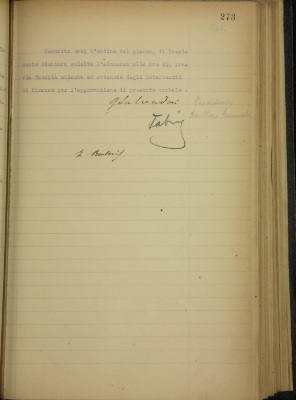 273
Esaurito così l'ordine del giorno, il Presi-
dente dichiara sciolta l'adunanza alle ore 19, pre-
via facoltà chiesta ed ottenuta dagli intervenuti
di firmare per l'approvazione il presente verbale.
GSalvadori
Presidente